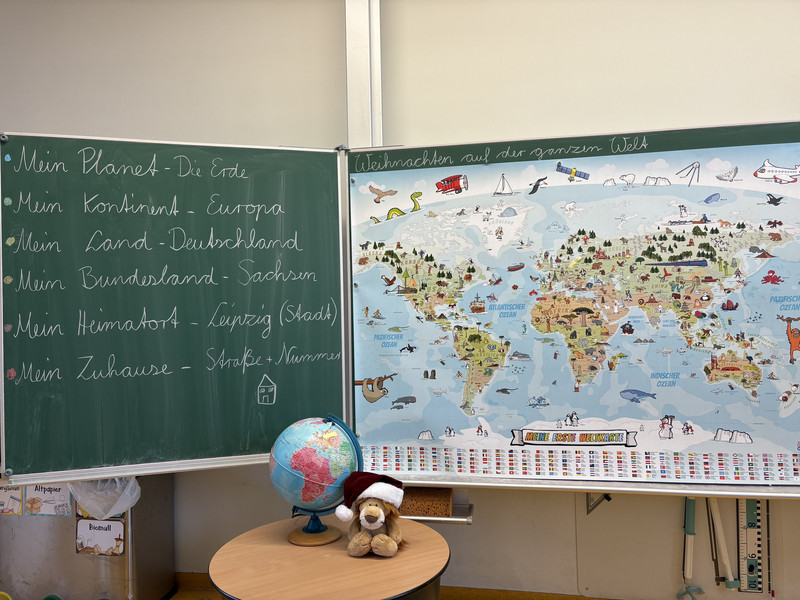 Mein Planet - Die Erde
Mein Kontinent - Europa
Mein Land - Deutschland
Mein Bundesland - Sachsen
Mein Heimatort - Leipzig (Stadt)
Mein Zuhause - Straße + Nummer
Weihnachten auf der ganzen Welt
ATLANTISCHER
OZEAN
PAZIFISCHER
OZEAN
PAZIFISCHER
OZEAN
INDISCHER
OZEAN
MEINE ERSTE WELTKARTE
Altpapier
Biomüll